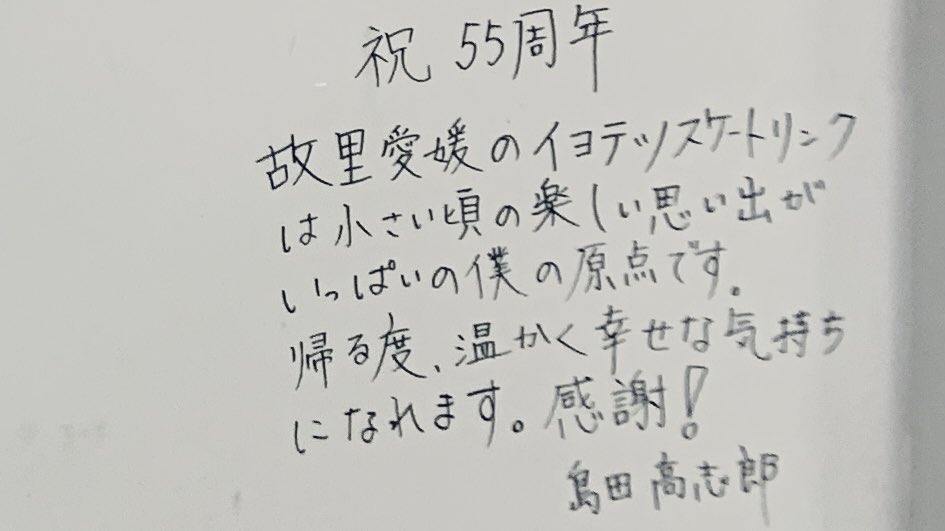 祝 55周年
故里愛媛のイヨテツスケートリンク
は小さい頃の楽しい思い出が
いっぱいの僕の原点です。
帰る度、温かく幸せな気持ち
になれます。感謝!
島田高志郎